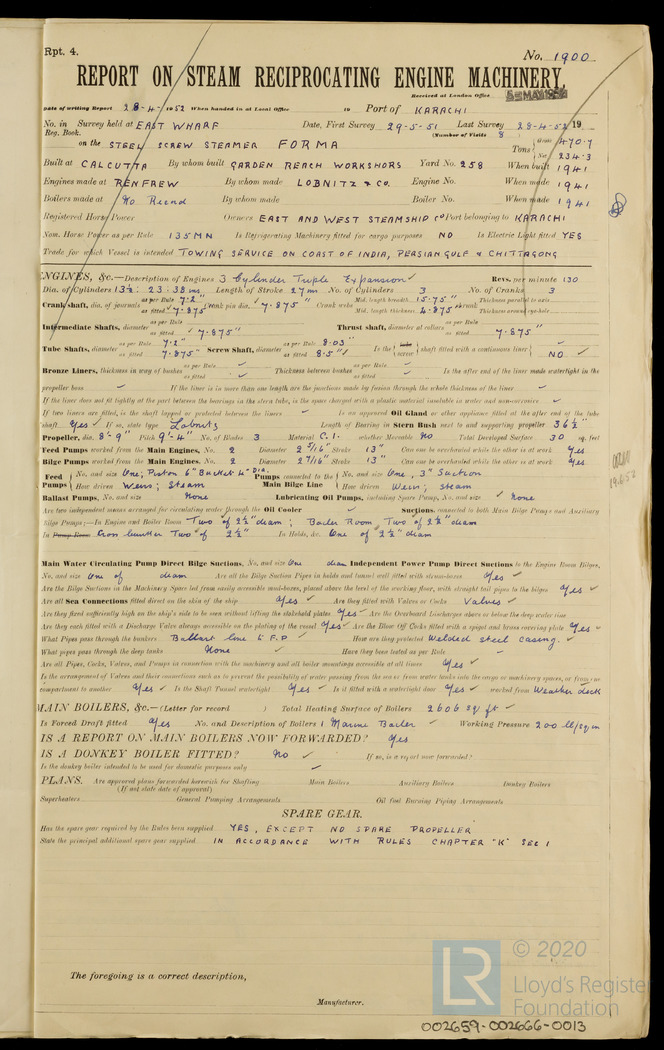 Rpt. 4.
No. 1900
REPORT ON STEAM RECIPROCATING ENGINE MACHINERY.
Received at London Office
Date of writing Report 28-4-1952 When handed in at Local Office 19 Port of KARACHI
No. in Survey held at EAST WHARF Date, First Survey 29-5-51 Last Survey 28-4-52 19
Reg. Book. (Number of Visits 8
on the STEEL SCREW STEAMER FORMA Tons Gross 470.7
Net 234.3
Built at CALCUTTA By whom built GARDEN REACH WORKSHORS Yard No. 258 When built 1941
Engines made at RENFREW By whom made LOBNITZ & CO. Engine No. When made 1941
Boilers made at No Record By whom made Boiler No. When made 1941
Registered Horse Power Owners EAST AND WEST STEAMSHIP Co Port belonging to KARACHI
Nom. Horse Power as per Rule 135 MN Is Refrigerating Machinery fitted for cargo purposes NO Is Electric Light fitted YES
Trade for which Vessel is intended TOWING SERVICE ON COAST OF INDIA, PERSIAN GULF & CHITTAGONG
ENGINES, &c.—Description of Engines 3 Cylinder Triple Expansion ✓ Revs. per minute 130
Dia. of Cylinders 13½: 23. 38 ins Length of Stroke 27 in No. of Cylinders 3 No. of Cranks 3
Crank shaft, dia. of journals as per Rule 7.2" as fitted 7.875" Crank pin dia. 7.875" Crank webs Mid. length breadth 15.75" Thickness parallel to axis
Mid. length thickness 4.875" shrunk Thickness around eye-hole
Intermediate Shafts, diameter as per Rule as fitted 7.875" Thrust shaft, diameter at collars as per Rule as fitted 7.875"
Tube Shafts, diameter as per Rule 7.2" as fitted 7.875" Screw Shaft, diameter as per Rule 8.03" as fitted 8.5" Is the screw shaft fitted with a continuous liner NO ✓
Bronze Liners, thickness in way of bushes as per Rule as fitted Thickness between bushes as per Rule as fitted Is the after end of the liner made watertight in the
propeller boss ✓ If the liner is in more than one length are the junctions made by fusion through the whole thickness of the liner ✓
If the liner does not fit tightly at the part between the bearings in the stern tube, is the space charged with a plastic material insoluble in water and non-corrosive ✓
If two liners are fitted, is the shaft lapped or protected between the liners ✓ Is an approved Oil Gland or other appliance fitted at the after end of the tube
shaft Yes ✓ If so, state type Lobnitz Length of Bearing in Stern Bush next to and supporting propeller 36½"
Propeller, dia. 8'-9" Pitch 9'-4" No. of Blades 3 Material C.I. whether Moveable No Total Developed Surface 30 sq. feet
Feed Pumps worked from the Main Engines, No. 2 Diameter 2 5/16" Stroke 13" Can one be overhauled while the other is at work Yes
Bilge Pumps worked from the Main Engines, No. 2 Diameter 2 7/16" Stroke 13" Can one be overhauled while the other is at work Yes
Feed Pumps No. and size One; Piston 6" Bucket 4" Dia. Pumps connected to the Main Bilge Line No. and size One, 3" Suction
How driven Weirs; Steam How driven Weirs; Steam
Ballast Pumps, No. and size None Lubricating Oil Pumps, including Spare Pump, No. and size ✓ None
Are two independent means arranged for circulating water through the Oil Cooler ✓ Suctions, connected to both Main Bilge Pumps and Auxiliary
Bilge Pumps;—In Engine and Boiler Room Two of 2½" diam; Boiler Room, Two of 2½" diam
In Pump Room Cross bunker Two of 2½" In Holds, &c. One of 2½" diam
Main Water Circulating Pump Direct Bilge Suctions, No. and size One diam Independent Power Pump Direct Suctions to the Engine Room Bilges,
No. and size One of diam Are all the Bilge Suction Pipes in holds and tunnel well fitted with strum-boxes Yes ✓
Are the Bilge Suctions in the Machinery Space led from easily accessible mud-boxes, placed above the level of the working floor, with straight tail pipes to the bilges Yes ✓
Are all Sea Connections fitted direct on the skin of the ship Yes ✓ Are they fitted with Valves or Cocks Valves ✓
Are they fixed sufficiently high on the ship's side to be seen without lifting the stokehold plates Yes ✓ Are the Overboard Discharges above or below the deep water line
Are they each fitted with a Discharge Valve always accessible on the plating of the vessel Yes ✓ Are the Blow Off Cocks fitted with a spigot and brass covering plate Yes ✓
What Pipes pass through the bunkers Ballast line to F.P ✓ How are they protected Welded steel casing. ✓
What pipes pass through the deep tanks None ✓ Have they been tested as per Rule ✓
Are all Pipes, Cocks, Valves, and Pumps in connection with the machinery and all boiler mountings accessible at all times Yes ✓
Is the arrangement of Valves and their connections such as to prevent the possibility of water passing from the sea or from water tanks into the cargo or machinery spaces, or from one
compartment to another Yes ✓ Is the Shaft Tunnel watertight Yes ✓ Is it fitted with a watertight door Yes ✓ worked from Weather deck
MAIN BOILERS, &c.—(Letter for record ) Total Heating Surface of Boilers 2606 sq ft ✓
Is Forced Draft fitted Yes No. and Description of Boilers 1 Marine Boiler ✓ Working Pressure 200 lb/sq in
IS A REPORT ON MAIN BOILERS NOW FORWARDED? Yes
IS A DONKEY BOILER FITTED? No ✓ If so, is a report now forwarded?
Is the donkey boiler intended to be used for domestic purposes only ✓
PLANS. Are approved plans forwarded herewith for Shafting Main Boilers Auxiliary Boilers Donkey Boilers
(If not state date of approval)
Superheaters General Pumping Arrangements Oil fuel Burning Piping Arrangements
SPARE GEAR.
Has the spare gear required by the Rules been supplied YES, EXCEPT NO SPARE PROPELLER
State the principal additional spare gear supplied IN ACCORDANCE WITH RULES CHAPTER "K" SEC 1
The foregoing is a correct description,
Manufacturer.
LR © 2020
Lloyd's Register
Foundation
002659-002666-0013